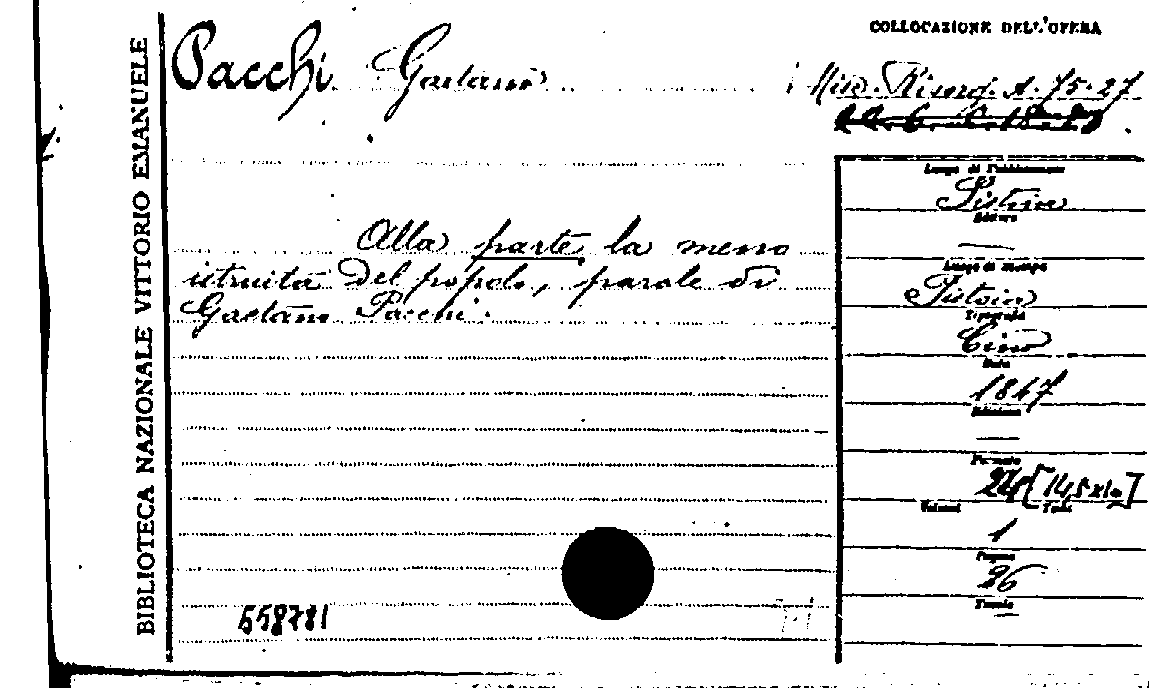 BIBLIOTECA NAZIONALE VITTORIO EMANUELE
Pacchi Gaetano
COLLOCAZIONE DELL'OPERA
Misc. Risorg. A. 75.27
Alla parte la meno
istruita del popolo, parole di
Gaetano Pacchi.
Luogo di Pubblicazione
Pistoia
Editore
—
Luogo di stampa
Pistoia
Tipografia
Cino
Data
1847
Edizione
—
Formato
24 [14,5x10]
Volumi Tomi
1
Pagine
26
Tavole
—
558781